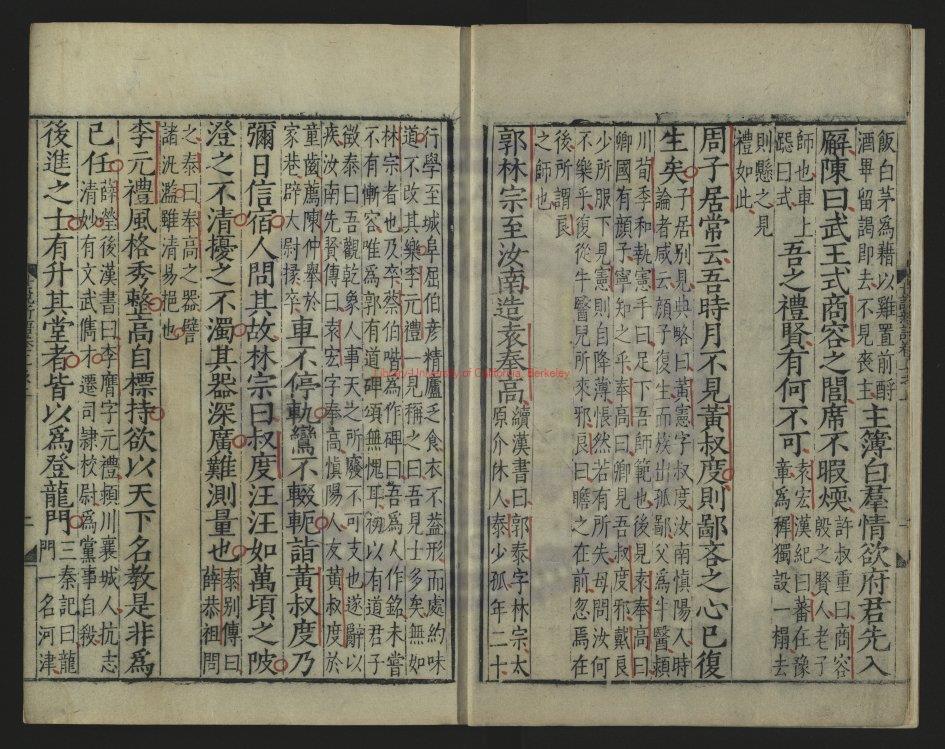 飯白茅為藉以雞置前酹
酒畢留謁即去不見喪主
主簿白羣情欲府君先入
廨陳曰武王式商容之閭席不暇煗
許叔重曰商容
殷之賢人老子
師也車上
跽曰式
吾之禮賢有何不可
袁宏漢紀曰蕃在豫
章為穉獨設一榻去
則懸之見
禮如此
周子居常云吾時月不見黃叔度則鄙吝之心已復
生矣
子居別見典略曰黃憲字叔度汝南慎陽人時
論者咸云顏子復生而族出孤鄙父為牛醫潁
川荀季和執憲手曰足下吾師範也後見袁奉高曰
卿國有顏子寧知之乎奉高曰卿見吾叔度邪戴良
少所服下見憲則自降薄悵然若有所失母問汝何
不樂乎復從牛醫兒所來邪良曰瞻之在前忽焉在
後所謂良
之師也
郭林宗至汝南造袁奉高
續漢書曰郭泰字林宗太
原介休人泰少孤年二十
行學至城阜屈伯彥精廬乏食衣不蓋形而處約味
道不改其樂李元禮一見稱之曰吾見士多矣無如
林宗者也及卒蔡伯喈為作碑曰吾為人作銘未嘗
不有慚容惟為郭有道碑頌無愧耳初以有道君子
徵泰曰吾觀乾象人事天之所廢不可支也遂辭以
疾汝南先賢傳曰袁宏字奉高慎陽人友黃叔度於
童齒薦陳仲舉於
家巷辟大尉掾卒
車不停軌鸞不輟軛詣黃叔度乃
彌日信宿人問其故林宗曰叔度汪汪如萬頃之陂
澄之不清擾之不濁其器深廣難測量也
泰別傳曰
薛恭祖問
之泰曰奉高之器譬
諸汎濫雖清易挹也
李元禮風格秀整高自標持欲以天下名教是非為
己任
薛瑩後漢書曰李膺字元禮潁川襄城人抗志
清妙有文武儁才遷司隸校尉為黨事自殺
後進之士有升其堂者皆以為登龍門
三秦記曰龍
門一名河津
Library-University of California, Berkeley